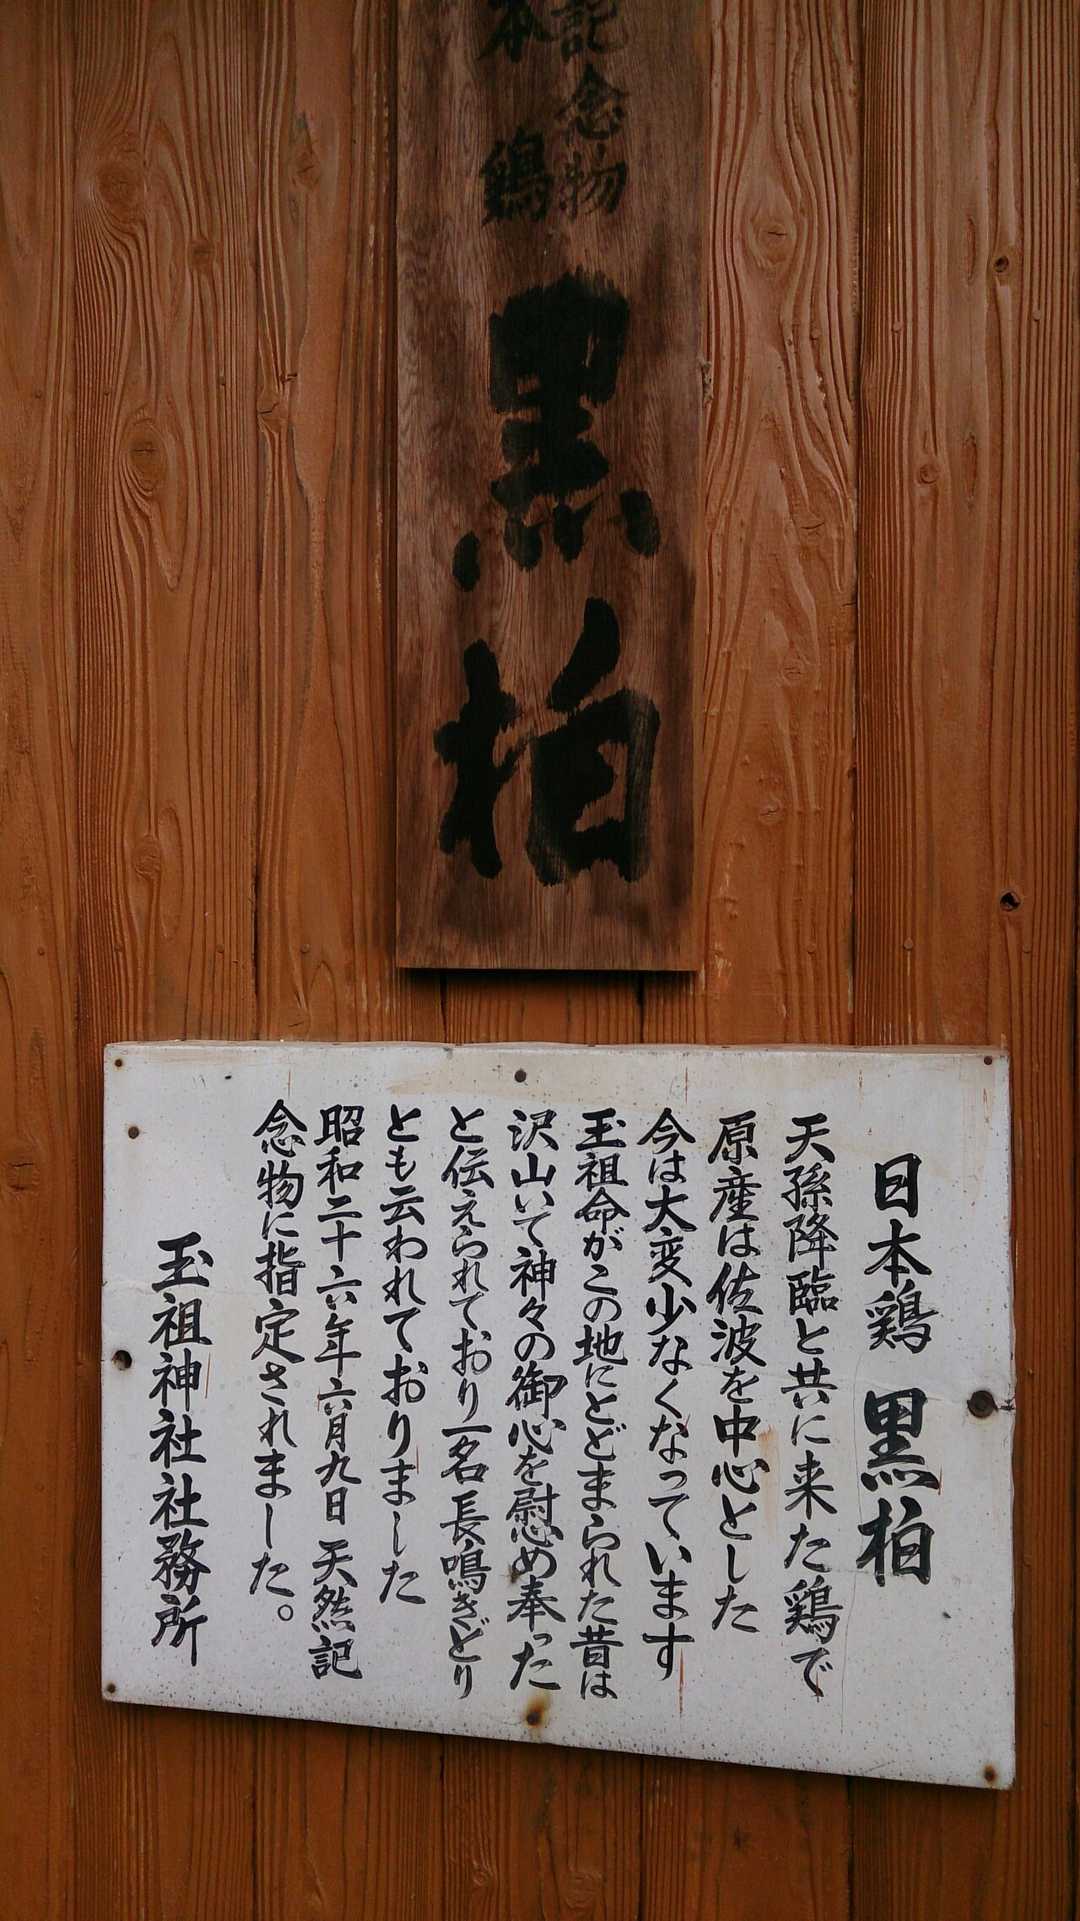 記念物
本鶏
黒柏
日本鶏 黒柏
天孫降臨と共に来た鶏で
原産は佐波を中心とした
今は大変少なくなっています
玉祖命がこの地にとどまられた昔は
沢山いて神々の御心を慰め奉った
と伝えられており一名長鳴きどり
とも云われておりました
昭和二十六年六月九日天然記
念物に指定されました。
玉祖神社社務所